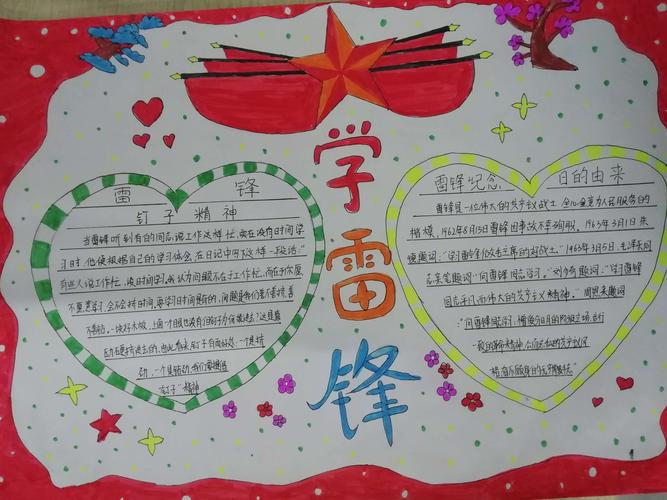 学
雷
锋
雷 锋
钉子精神
当雷锋听到有的同志说工作这样忙,实在没有时间学
习时,他便根据自己的学习体会,在日记中写下这样一段话:"
有些人说工作忙,没时间学习,我认为问题不在工作忙,而在于你愿
不愿意学习,会不会挤时间,要学习时间是有的,问题是我们善不善挤,愿
不愿钻。一块好木板,上面一个眼也没有,但钉子为什么能钉进去?这是靠
压力硬挤进去的,由此看来,钉子有两个好处:一个是挤
劲,一个是钻劲,我们要提倡
"钉子"精神
雷锋纪念 日的由来
雷锋是一位伟大的共产主义战士,全心全意为人民服务的
楷模,1962年8月15日雷锋因事故不幸殉职,1963年3月1日朱
德题词:"学习雷锋做毛主席的好战士。"1963年3月5日,毛泽东同
志亲笔题词:"向雷锋同志学习。"刘少奇题词:"学习雷锋
同志平凡而伟大的共产主义精神。"周恩来题词
"向雷锋同志学习:憎爱分明的阶级立场,言行
一致的革命精神,公而忘私的共产主义风
格,奋不顾身的无产阶级斗志"